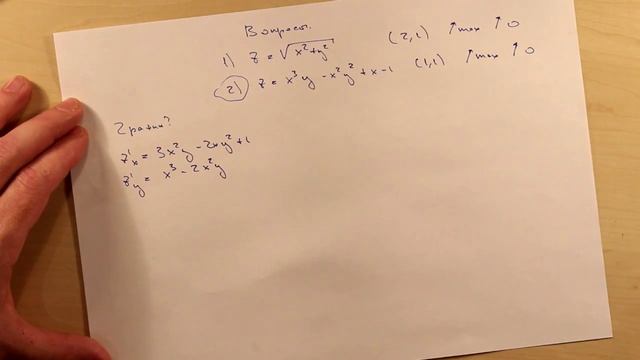 Вопросы.
1) z = √(x²+y²) (2,1) ↑max ↑0
2) z = x³y - x²y² + x - 1 (1,1) ↑max ↑0
z'x = 3x²y - 2xy² + 1
z'y = x³ - 2x²y